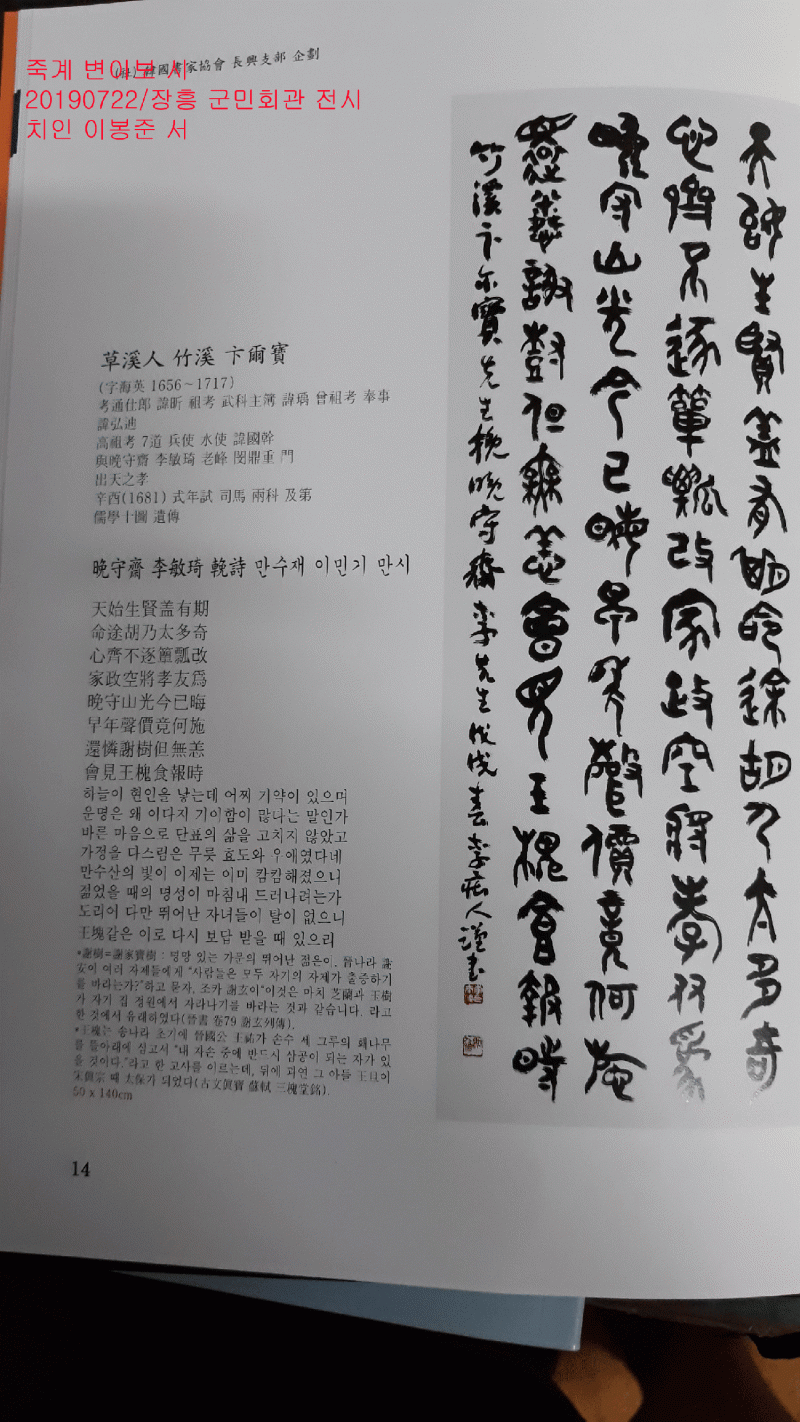 (社)韓國書家協會 長興支部 企劃
죽계 변이보 시
20190722/장흥 군민회관 전시
치인 이봉준 서
草溪人 竹溪 卞爾寶
(字海英 1656~1717)
考通仕郎 諱昕 祖考 武科主簿 諱瑀 曾祖考 奉事
諱弘迪
高祖考 7道 兵使 水使 諱國幹
與晩守齋 李敏琦 老峰 閔鼎重 門
出天之孝
辛酉(1681) 式年試 司馬 兩科 及第
儒學十圖 遺傳
晩守齋 李敏琦 輓詩 만수재 이민기 만시
天始生賢盖有期
命途胡乃太多奇
心齊不逐簞瓢改
家政空將孝友爲
晩守山光今已晦
早年聲價竟何施
還憐謝樹但無恙
會見王槐食報時
하늘이 현인을 낳는데 어찌 기약이 있으며
운명은 왜 이다지 기이함이 많나는 말인가
바른 마음으로 단표의 삶을 고치지 않았고
가정을 다스림은 무릇 효도와 우애였다네
만수산의 빛이 이제는 이미 캄캄해졌으니
젊었을 때의 명성이 마침내 드러나려는가
도리어 다만 뛰어난 자녀들이 탈이 없으니
王塊같은 이로 다시 보답 받을 때 있으리
*謝樹=謝家寶樹 : 명망 있는 가문의 뛰어난 젊은이. 晉나라 謝
安이 여러 자제들에게 "사람들은 모두 자기의 자제가 출중하기
를 바라는가?"하고 묻자, 조카 謝玄이"이것은 마치 芝蘭과 玉樹
가 자기 집 정원에서 자라나기를 바라는 것과 같습니다. 라고
한 것에서 유래하였다(晉書 卷79 謝玄列傳).
*王槐는 송나라 초기에 晉國公 王祐가 손수 세 그루의 홰나무
를 뜰아래에 심고서 "내 자손 중에 반드시 삼공이 되는 자가 있
을 것이다."라고 한 고사를 이르는데, 뒤에 과연 그 아들 王旦이
宋眞宗 때 太保가 되었다(古文眞寶 蘇軾 三槐堂銘).
50 x 140cm
14
天始生賢盖有期命途胡乃太多奇
心齊不逐簞瓢改家政空將孝友爲
晩守山光今已晦早年聲價竟何施
還憐謝樹但無恙會見王槐食報時
竹溪卞爾寶先生輓晩守齋李先生戊戌春李痴人謹書